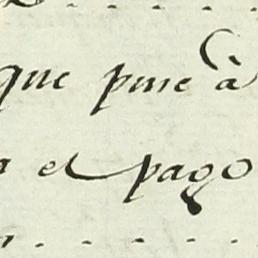 que puse à
el pago